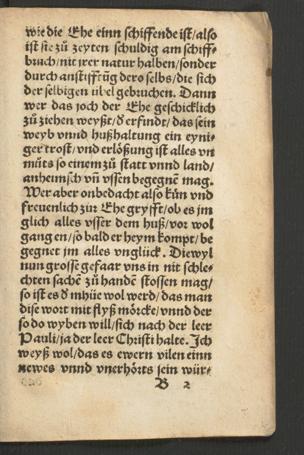 wie die Ehe einn schiffende ist/also
ist sie zů zeyten schuldig am schiff-
bruch/nit irer natur halben/sonder
durch anstifftũg dero selbs/die sich
der selbigen ubel gebruchen. Dann
wer das joch der Ehe geschicklich
zů ziehen weyßt/d erfindt/das sein
weyb vnnd hußhaltung ein eyni-
ger trost/vnd erlößung ist alles vn
můts so einem zů statt vnnd land/
anheimsch vñ vssen begegnẽ mag.
Wer aber onbedacht also kůn vnd
freuenlich zur Ehe gryfft/ob es jm
glich alles vsser dem huß/vor wol
gang en/so bald er heym kompt/be
gegnet jm alles vnglück. Diewyl
nun grosse gefaar vns in nit schle-
chten sachẽ zů handẽ stossen mag/
so ist es d mhüe wol werd/das man
dise wort mit flyß mörcke/vnnd der
so do wyben will/sich nach der leer
Pauli/ja der leer Christi halte. Ich
weyß wol/das es ewern vilen einn
newes vnnd vnerhörts sein wür-
B 2